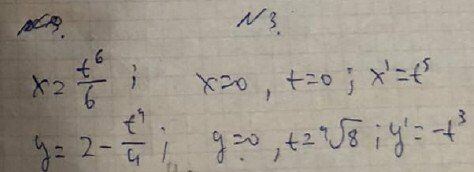 N 3.
x = t⁶/6 ; x=0, t=0 ; x' = t⁵
y = 2 - t⁴/4 ; y=0, t=⁴√8 ; y' = -t³